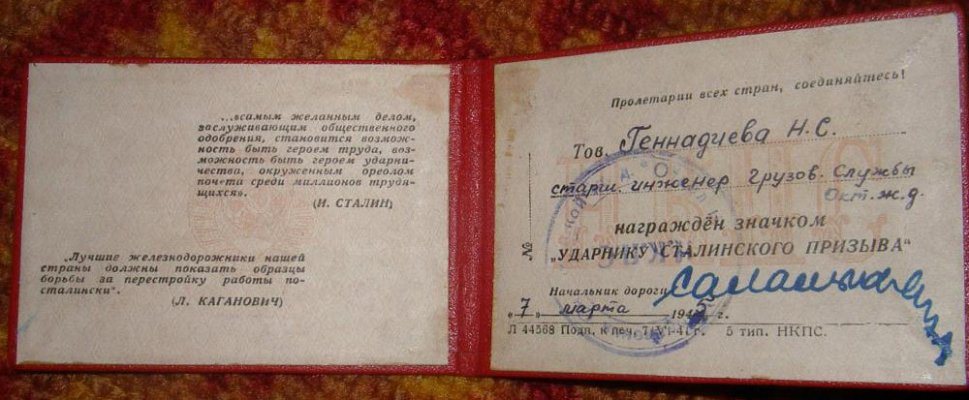 „...всамым желанным делом,
заслуживающим общественного
одобрения, становится возмож-
ность быть героем труда, воз-
можность быть героем ударни-
чества, окруженным ореолом
почета среди миллионов трудя-
щихся».
(И. СТАЛИН)
„Лучшие железнодорожники нашей
страны должны показать образцы
борьбы за перестройку работы по-
сталински“.
(Л. КАГАНОВИЧ)
Пролетарии всех стран, соединяйтесь!
Тов. Геннадиева Н.С.
старш. инженер грузов. Службы
Окт.ж.д.
№
награждён значком
„УДАРНИКУ СТАЛИНСКОГО ПРИЗЫВА“
Начальник дороги
„7“ марта 1945 г.
Л 44568 Подп. к печ. 7/VI-41г. 5 тип. НКПС.